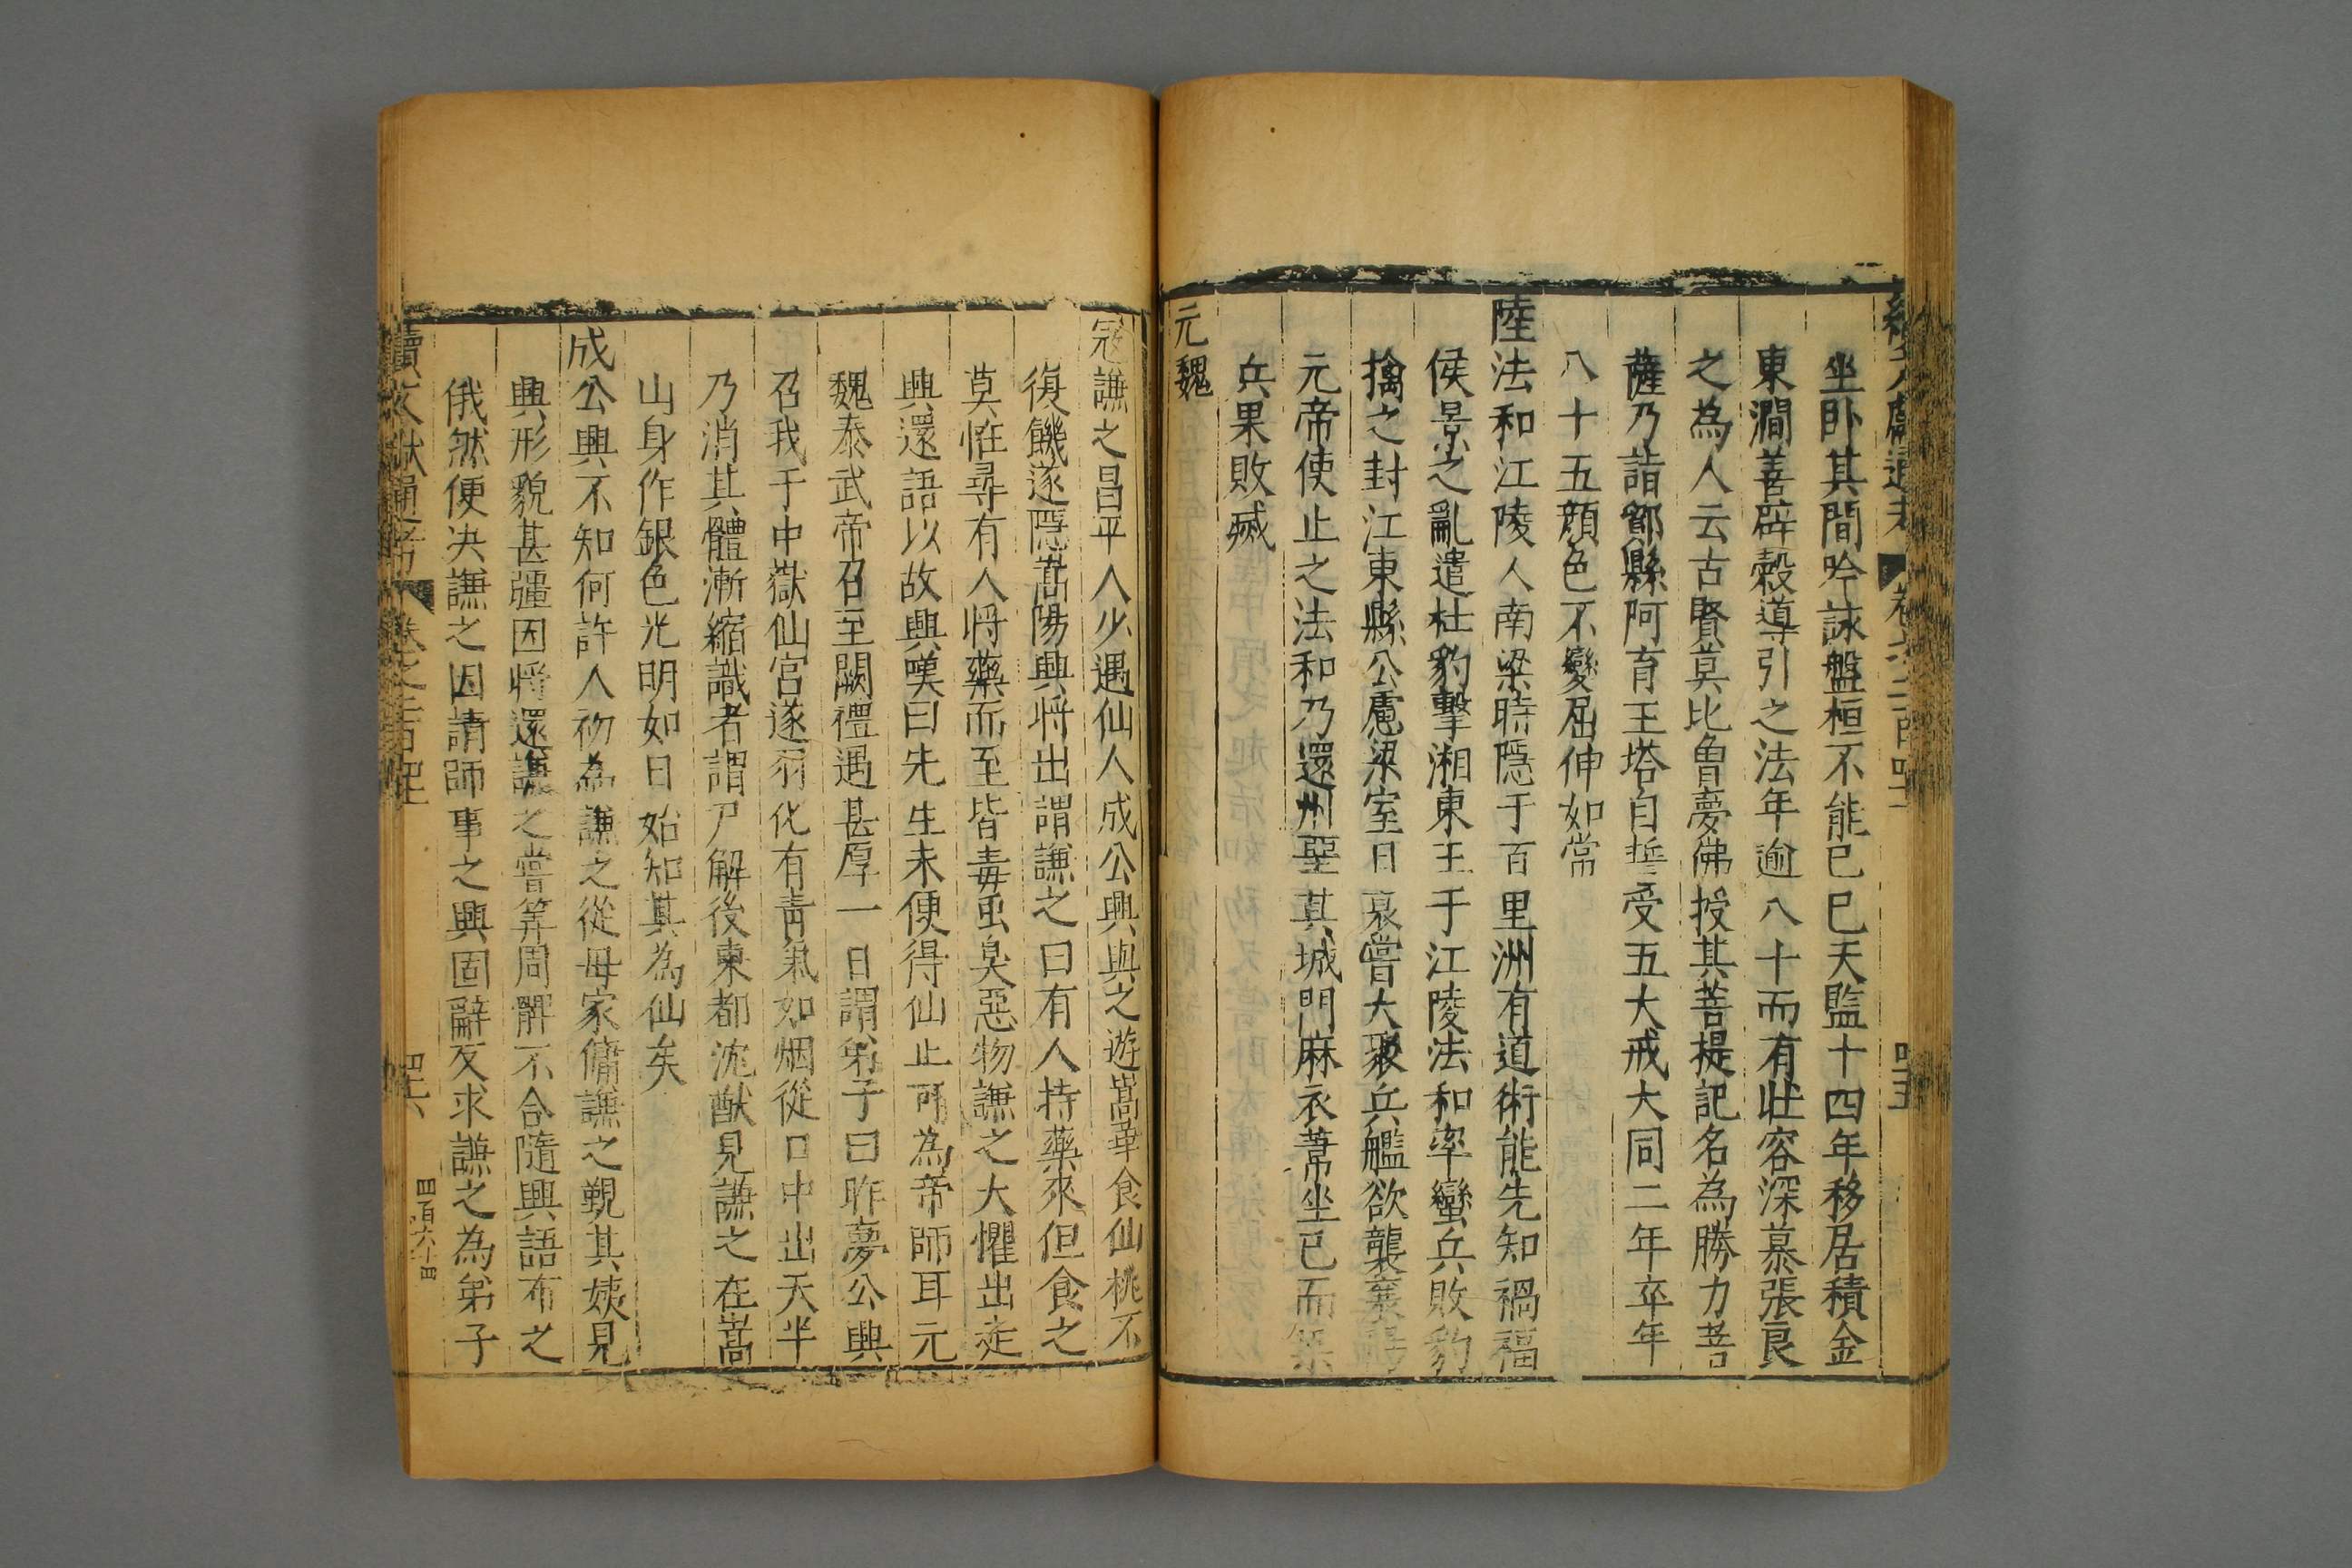 坐卧其間吟詠盤桓不能已巳天監十四年移居積金
東澗善辟穀導引之法年逾八十而有壯容深慕張良
之為人云古賢莫比曾夢佛授其菩提記名為勝力菩
薩乃詣鄮縣阿育王塔自誓受五大戒大同二年卒年
八十五顔色不變屈伸如常
陸法和江陵人南梁時隱于百里洲有道術能先知禍福
侯景之亂遣杜豹擊湘東王于江陵法和率蠻兵敗豹
擒之封江東縣公慮梁室日衰嘗大聚兵艦欲襲襄陽
元帝使止之法和乃還州堊其城門麻衣蓆坐已而梁
兵果敗滅
元魏
寇謙之昌平人少遇仙人成公興與之遊嵩華食仙桃不
復饑遂隱嵩陽興將出謂謙之曰有人持藥來但食之
莫恠尋有人将藥而至皆毒虫臭惡物謙之大懼出走
興還語以故興嘆曰先生未便得仙止可為帝師耳元
魏泰武帝召至闕禮遇甚厚一日謂弟子曰昨夢公興
召我于中嶽仙宮遂羽化有青氣如烟從口中出天半
乃消其體漸縮識者謂尸解後東都沈猷見謙之在嵩
山身作銀色光明如日始知其為仙矣
成公興不知何許人初為謙之從母家傭謙之覲其姨見
興形貌甚彊因将還謙之嘗筭周髀不合隨興語布之
俄然便决謙之因請師事之興固辭反求謙之為弟子
續文獻通考
四百六十四